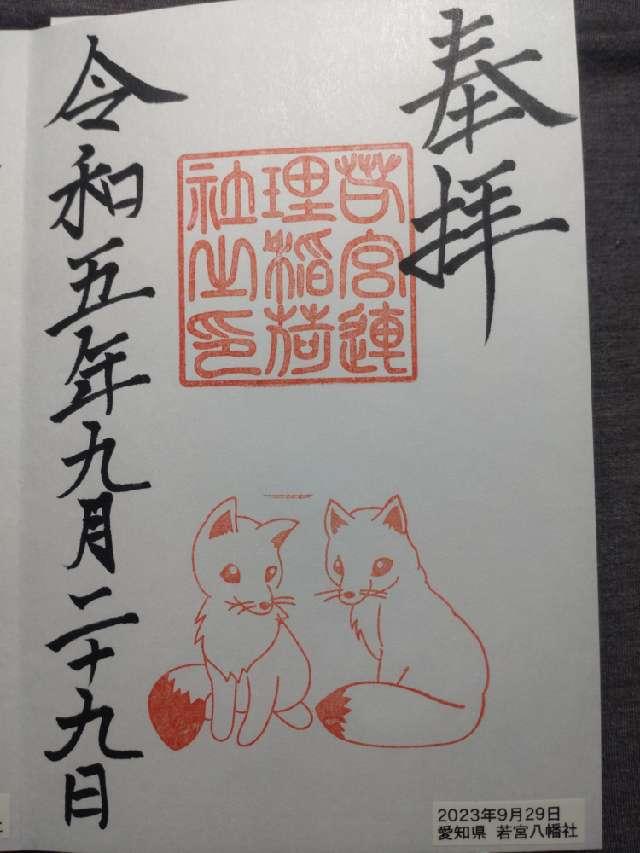 奉拝
若宮連
理稲荷
社之印
令和五年九月二十九日
2023年9月29日
愛知県 若宮八幡社
社